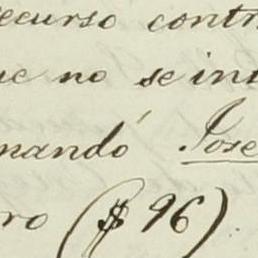 recurso contr
ue no se int
mandó Jose
ro ($ 96)